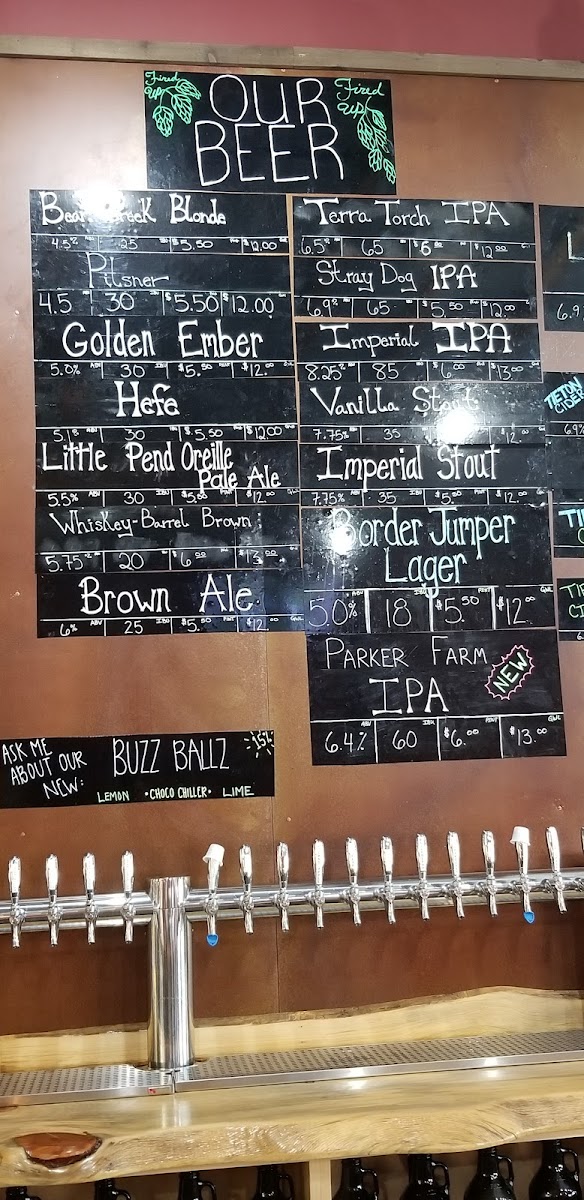 Fired Up
OUR BEER
Fired Up
Bear Creek Blonde
4.5% 25 $5.50 $12.00
Pilsner
4.5 30 $5.50 $12.00
Golden Ember
5.0% ABV 30 IBU $5.50 $12.00
Hefe
5.1% 30 $5.50 $12.00
Little Pend Oreille
Pale Ale
5.5% ABV 30 IBU $5.50 PINT $12.00 GWL
Whiskey-Barrel Brown
5.75% 20 $6.00 $13.00
Brown Ale
6% ABV 25 IBU $5.50 PINT $12.00 GWL
Terra Torch IPA
6.5% 65 $6.00 $12.00
Stray Dog IPA
6.9% 65 $5.50 $12.00
Imperial IPA
8.25% 85 $6.00 $13.00
Vanilla Stout
7.75% 35 $12.00
Imperial Stout
7.75% ABV 35 IBU $5.50 PINT $12.00 GWL
Border Jumper
Lager
5.0% ABV 18 IBU $5.50 PINT $12.00 GWL
PARKER FARM
IPA
NEW
6.4% ABV 60 IBU $6.00 PINT $13.00 GWL
L
6.9
TIETON
CIDER
6.9%
TI
C
TIE
CI
6.
ASK ME
ABOUT OUR
NEW:
BUZZ BALLZ
15%
LEMON • CHOCO CHILLER • LIME